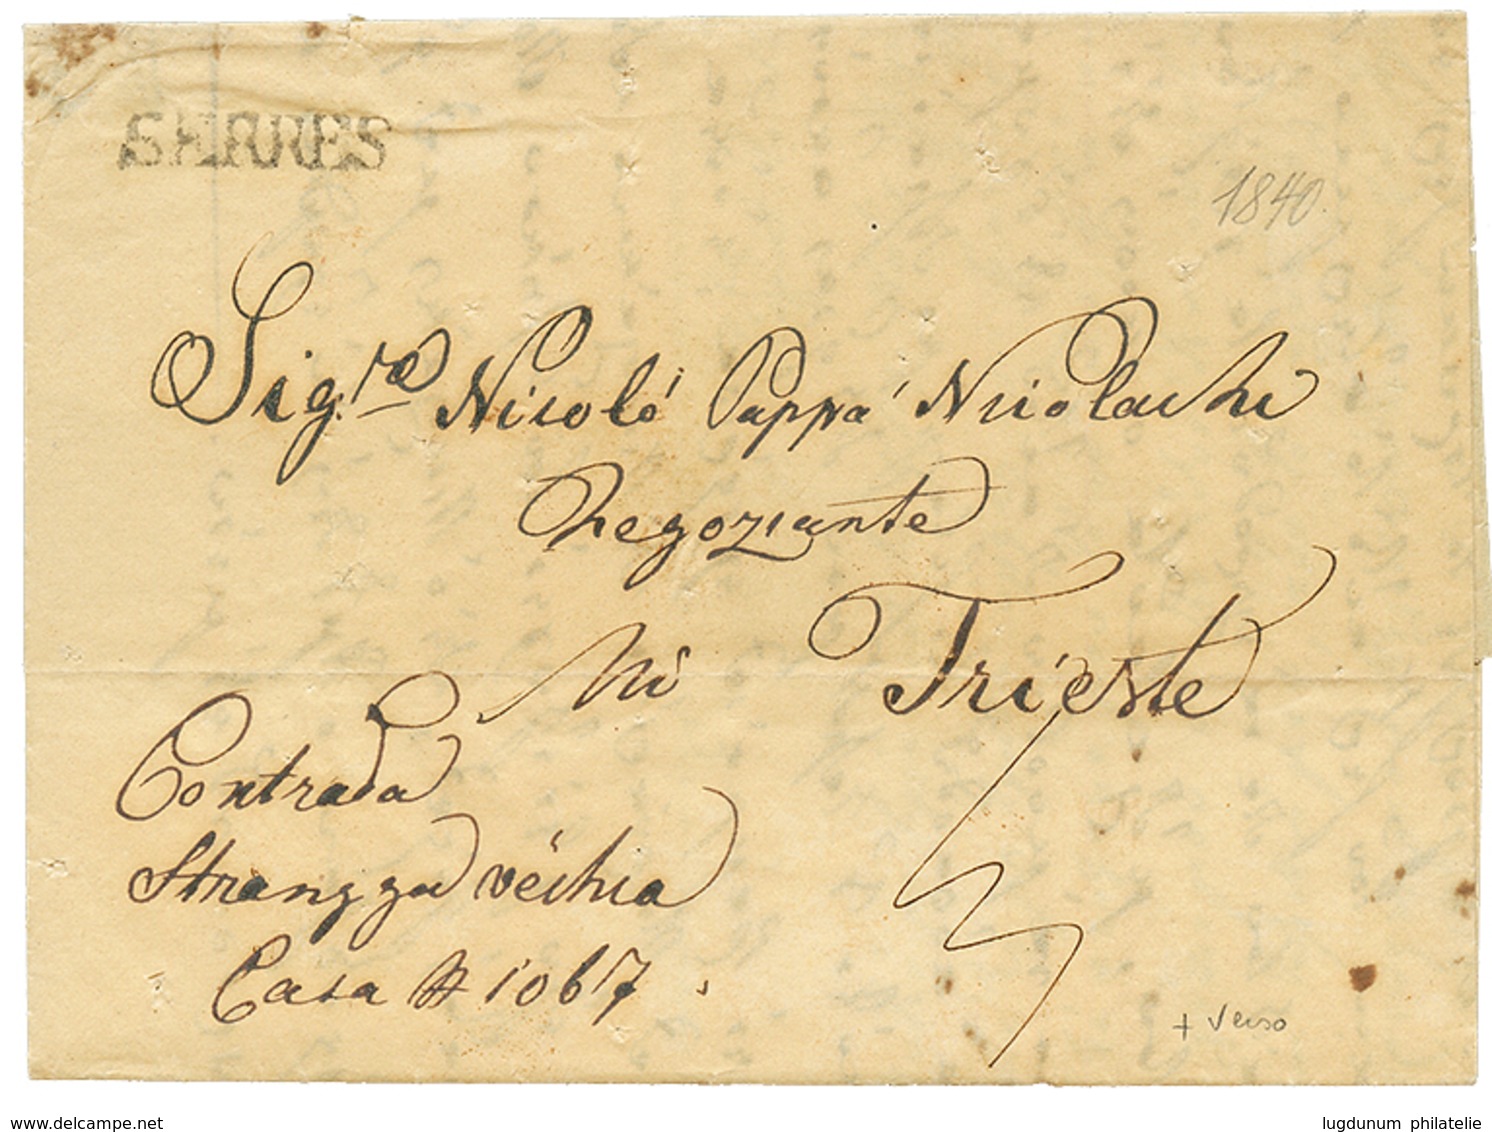 SERRES
1840
Sig.re Nicoló Pappá Nicolachi
Negoziante
in Trieste
Contrada
Strangga véchia
Casa N 1067.
+ Verso
www.delcampe.net
lugdunum philatelie